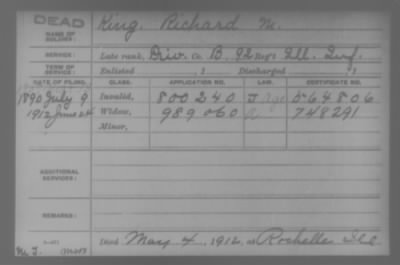 DEAD
NAME OF SOLDIER: King, Richard M.
SERVICE: Late rank, Priv. Co. B, 92 Reg't Ill. Inf.
TERM OF SERVICE: Enlisted , 1 Discharged , 1
DATE OF FILING. CLASS. APPLICATION NO. LAW. CERTIFICATE NO.
1890 July 9 Invalid, 800240 564806
1912 June 24 Widow, 989060 748291
Minor,
ADDITIONAL SERVICES:
REMARKS:
Died May 4, 1912, at Rochelle Ill